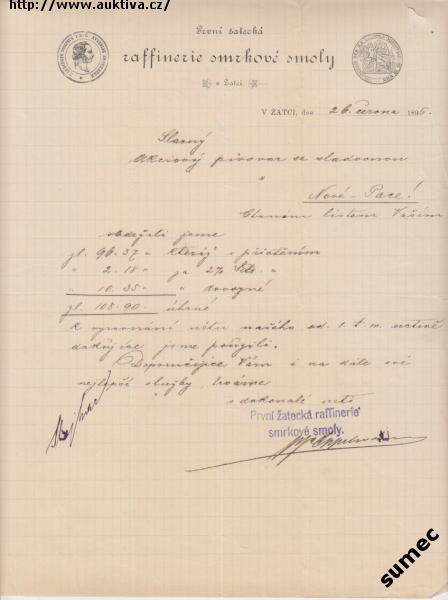 http://www.auktiva.cz/
První žatecká
raffinerie smrkové smoly
v Žatci.
V ŽATCI, dne 26 června 1896.
Slavný
Akciový pivovar se sladovnou
v
Nové-Pace!
Ctěným listem Vaším
obdrželi jsme
zl. 96.37 " kterýž s přičtěním
" 2.18 " za 2% Sto "
" 10.35 " " dovozné
zl. 108.90 " úhrně
k vyrovnání účtu našeho od 1. t. m. uctivě
děkujíce jsme použili.
Doporučujíce Vám i na dále své
nejlepší služby, trváme
v dokonalé úctě
První žatecká raffinerie
smrkové smoly.
sumec